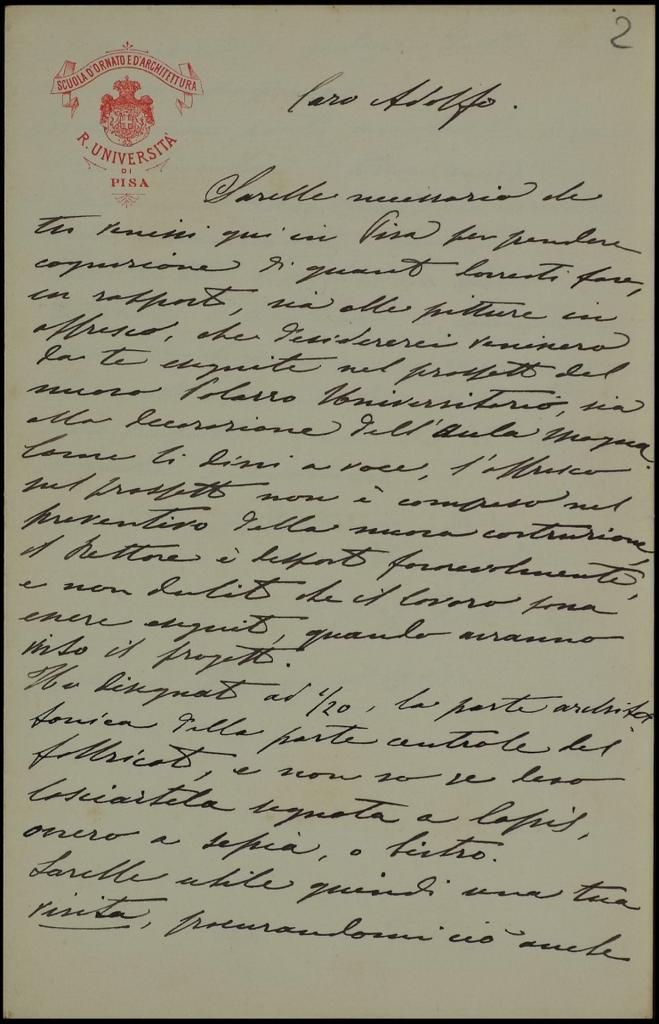 2
SCUOLA D'ORNATO E D'ARCHITETTURA
R. UNIVERSITÀ
DI
PISA
Caro Adolfo.
Sarebbe necessario che
tu venissi qui in Pisa per prendere
cognizione di quanto dovresti fare,
in rapporto, sia alle pitture in
affresco, che desidererei venissero
da te eseguite nel prospetto del
nuovo Palazzo Universitario, sia
alla decorazione dell'Aula Magna.
Come ti dissi a voce, l'affresco
nel prospetto non è compreso nel
preventivo della nuova costruzione,
il Rettore è disposto favorevolmente,
e non dubito che il lavoro possa
essere eseguito, quando avranno
visto il progetto.
Ho disegnato ad 1/20, la parte architet
tonica della parte centrale del
fabbricato, e non so se devo
lasciartela segnata a lapis,
ovvero a sepia, o bistro.
Sarebbe utile quindi una tua
visita, procurandomi ciò anche